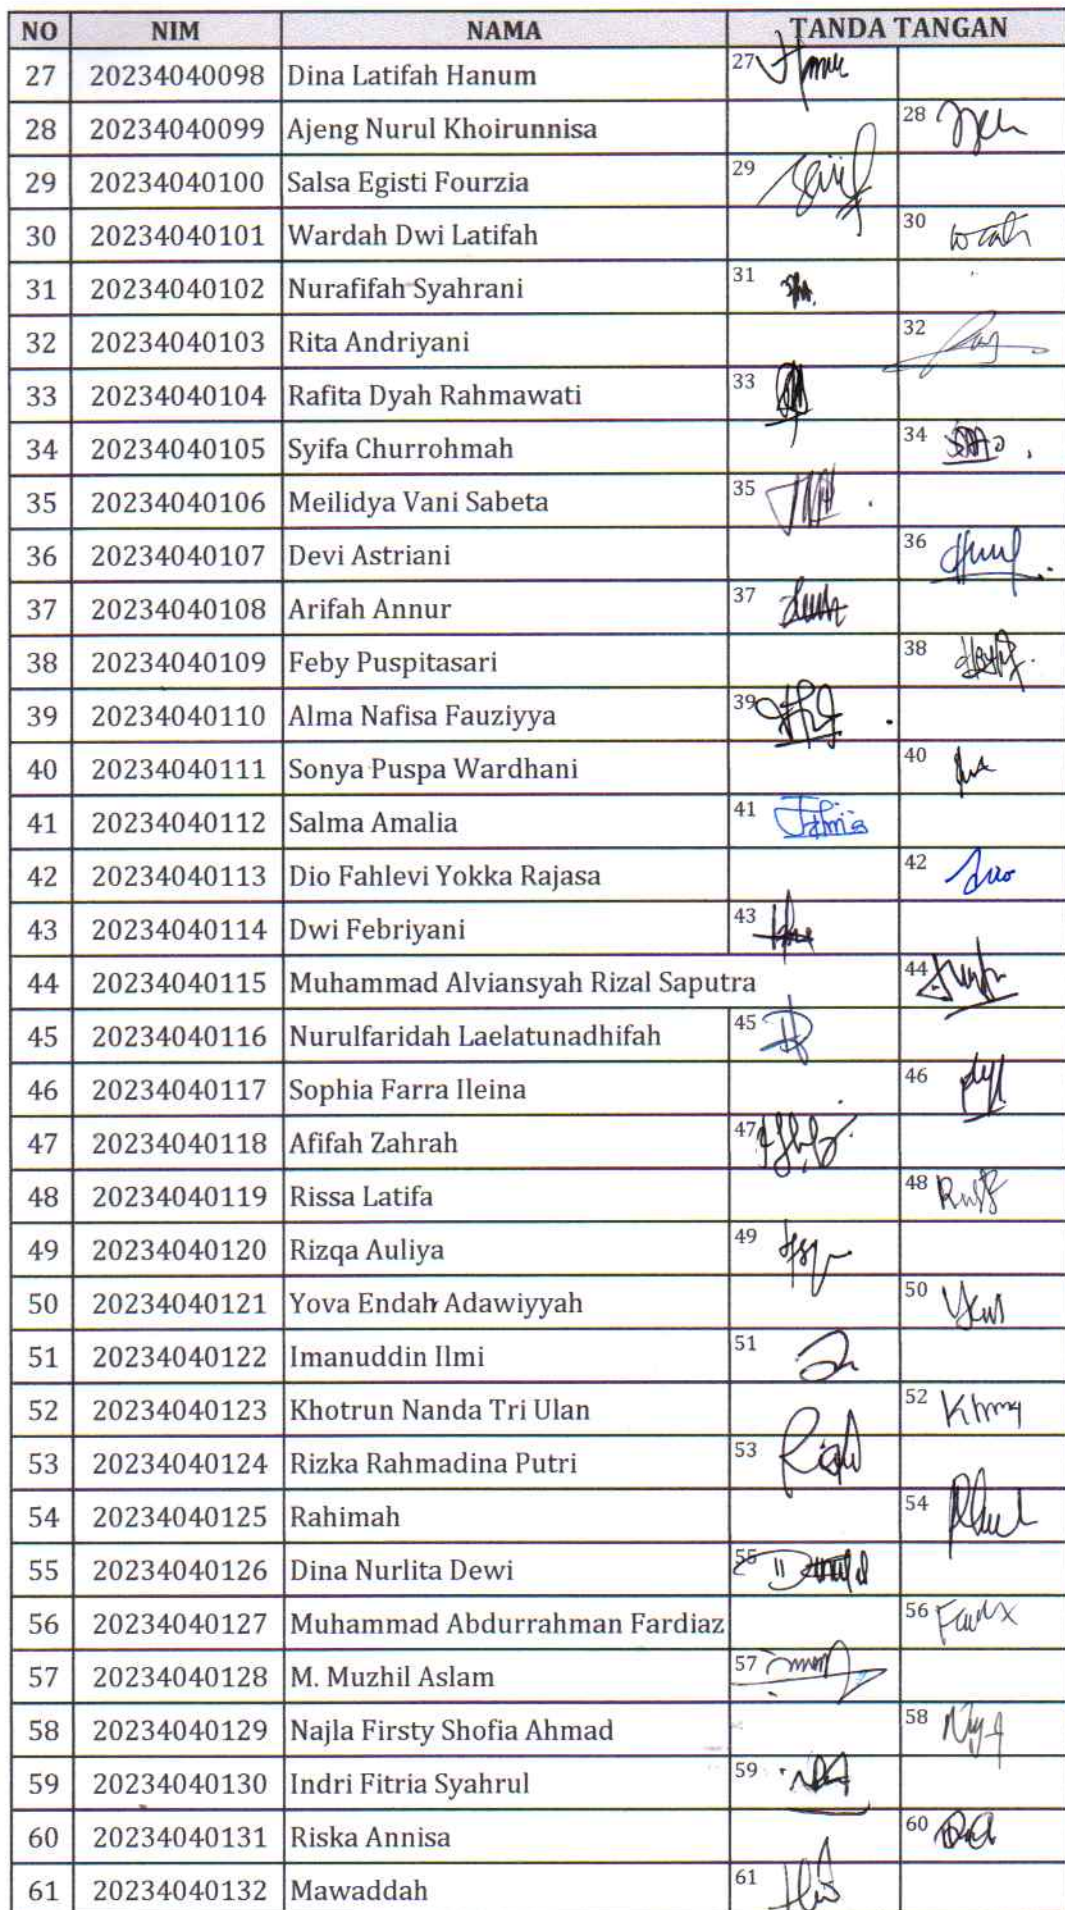 NO NIM NAMA TANDA TANGAN
27 20234040098 Dina Latifah Hanum 27
28 20234040099 Ajeng Nurul Khoirunnisa 28
29 20234040100 Salsa Egisti Fourzia 29
30 20234040101 Wardah Dwi Latifah 30
31 20234040102 Nurafifah Syahrani 31
32 20234040103 Rita Andriyani 32
33 20234040104 Rafita Dyah Rahmawati 33
34 20234040105 Syifa Churrohmah 34
35 20234040106 Meilidya Vani Sabeta 35
36 20234040107 Devi Astriani 36
37 20234040108 Arifah Annur 37
38 20234040109 Feby Puspitasari 38
39 20234040110 Alma Nafisa Fauziyya 39
40 20234040111 Sonya Puspa Wardhani 40
41 20234040112 Salma Amalia 41
42 20234040113 Dio Fahlevi Yokka Rajasa 42
43 20234040114 Dwi Febriyani 43
44 20234040115 Muhammad Alviansyah Rizal Saputra 44
45 20234040116 Nurulfaridah Laelatunadhifah 45
46 20234040117 Sophia Farra Ileina 46
47 20234040118 Afifah Zahrah 47
48 20234040119 Rissa Latifa 48
49 20234040120 Rizqa Auliya 49
50 20234040121 Yova Endah Adawiyyah 50
51 20234040122 Imanuddin Ilmi 51
52 20234040123 Khotrun Nanda Tri Ulan 52
53 20234040124 Rizka Rahmadina Putri 53
54 20234040125 Rahimah 54
55 20234040126 Dina Nurlita Dewi 55
56 20234040127 Muhammad Abdurrahman Fardiaz 56
57 20234040128 M. Muzhil Aslam 57
58 20234040129 Najla Firsty Shofia Ahmad 58
59 20234040130 Indri Fitria Syahrul 59
60 20234040131 Riska Annisa 60
61 20234040132 Mawaddah 61